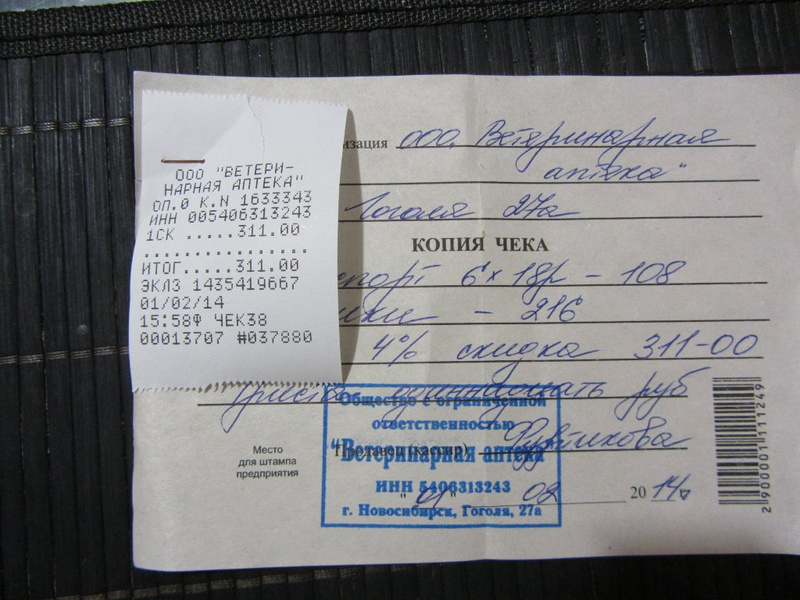 ООО "ВЕТЕРИ-
НАРНАЯ АПТЕКА"
ОП.0 К.N 1633343
ИНН 005406313243
1СК .....311.00
ИТОГ.....311.00
ЭКЛЗ 1435419667
01/02/14
15:58Ф ЧЕК38
00013707 #037880
изация ООО. Ветеринарная
аптека"
Гоголя 27а
КОПИЯ ЧЕКА
спорт 6 x 18р – 108
– 216
4% скидка 311-00
Триста одиннадцать руб
Общество с ограниченной
ответственностью
Продавец (кассир)
"Ветеринарная аптека"
ИНН 5406313243
г. Новосибирск, Гоголя, 27а
Место
для штампа
предприятия
"01" 02 2014г
2 900001 111249